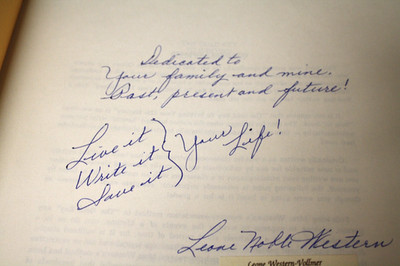 Dedicated to
Your family and mine.
Past, present and future!
Live it
Write it } Your Life!
Save it
Leone Noble Western
Leone Western-Vollmer